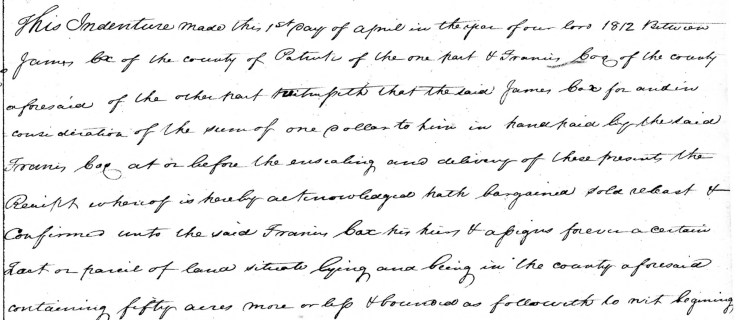 This Indenture made this 1st Day of April in the year of our lord 1812 Between
James Cox of the county of Patrick of the one part & Francis Cox of the county
aforesaid of the other part Witnesseth that the said James Cox for and in
consideration of the sum of one Dollar to him in hand paid by the said
Francis Cox at or before the ensealing and delivery of these presents the
Receipt whereof is hereby acknowledged hath bargained sold releast &
Confirmed unto the said Francis Cox his heirs & assigns forever a certain
Tract or parcel of land situate lying and being in the county aforesaid
containing fifty acres more or less & bounded as followith to wit begining